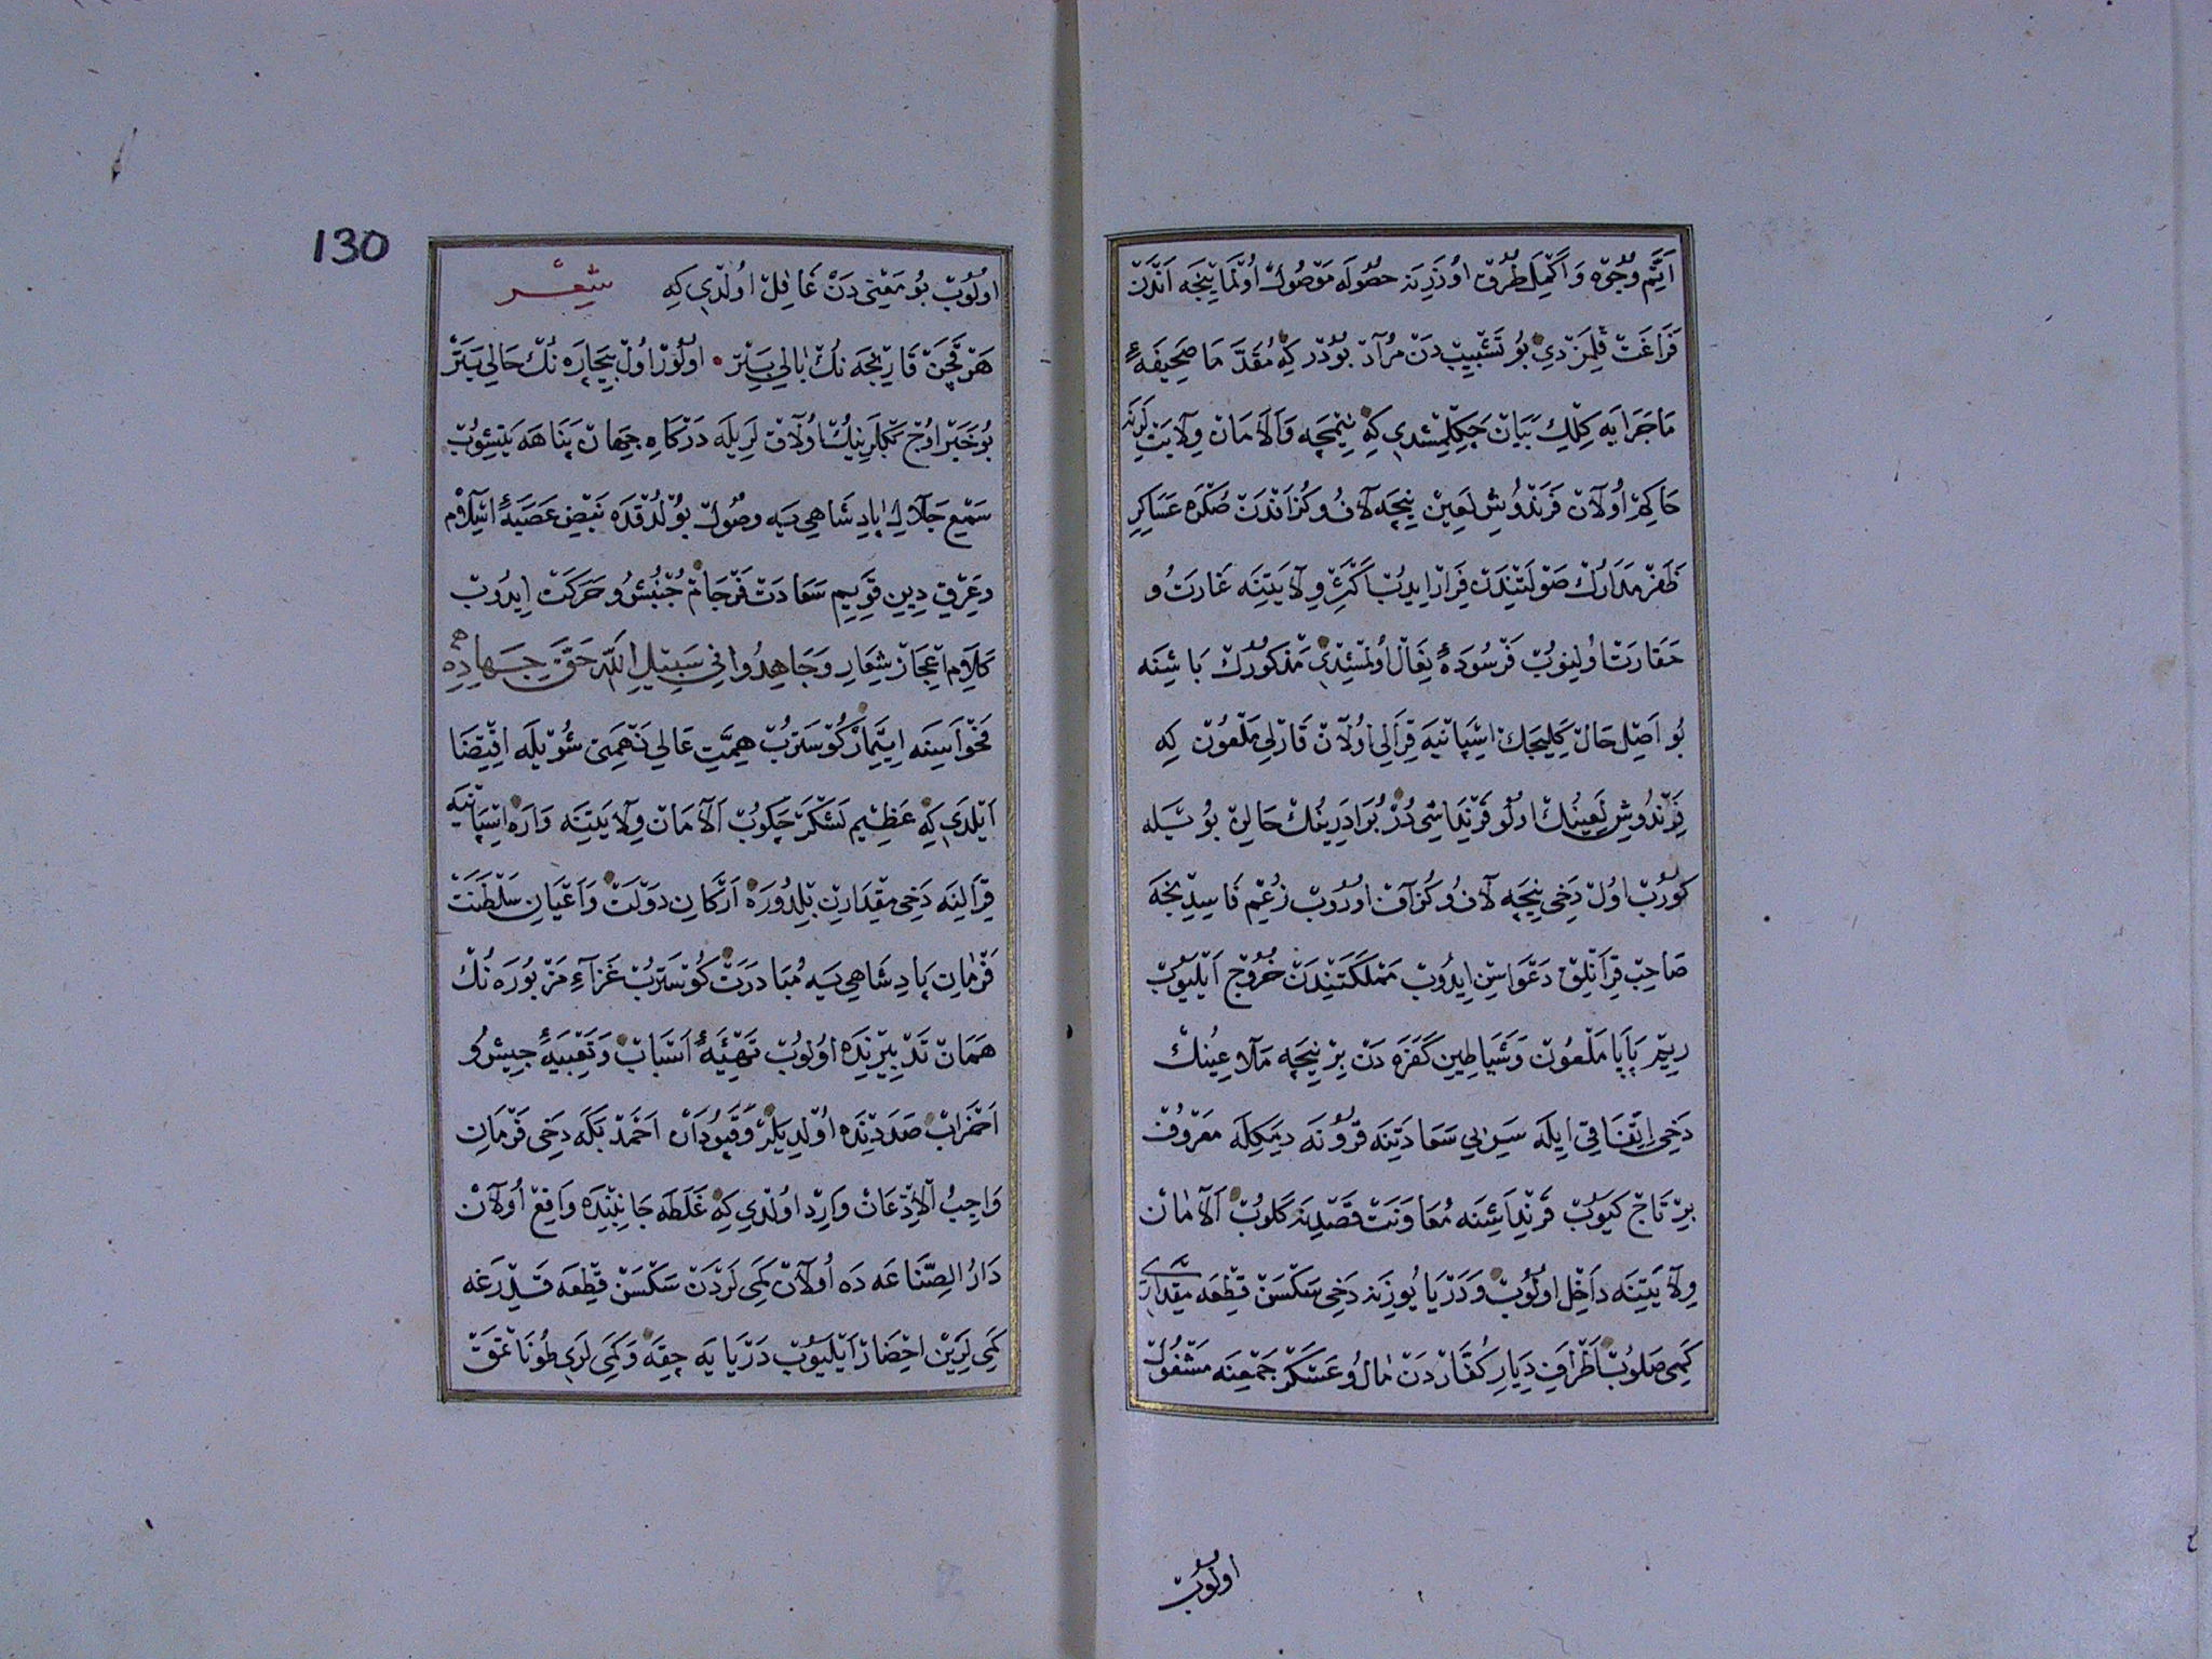 اَتَمِّ وُجُوه وَاَكْمَلِ طُرُق اوُزَرِينَه حصُولَه مَوْصُولْ اوُلمَاينجَه اَنْدَنْ
فَرَاغَتْ قِلمَزْدِي بُو تَشْبِيبْ دَنْ مُرَادْ بُودُر كِه مُقَدَّمَا صَحِيفَۀ
مَاجَرَايَه كِلْكِ بَيَانْ چَكِلمِشْدِي كِه نِيمچَه وَاَلَامَانْ وِلَايَتْلَرِنَه
حَاكِمْ اُولَانْ فَرَنْدُوشِ لَعِينْ نِيچَه لَافُ وكُزَافْدَنْ صُكْرَه عَسَاكِرِ
ظَفَرْمَدَارُكْ صَوْلَتِنْدَنْ فِرَارْ ايدُبْ اَكْثَرِ وِلَايَتِنَه غَارَتُ و
حَقَارَتْ اُولِنُوبْ فَرْسُودَۀ نِعَالْ اُولمُشْدِي مَذْكُورُكْ بَاشِنَه
بُو اَصِلْ حَالْ كَلِيجَكْ اِسْپَانيَه قِرَالِي اُولَانْ قَارْلِي مَلْعُونْ كِه
فَرَنْدُوشِ لَعِينُكْ اُولُو قَرِنْدَاشِي دُرْ بُرَادَرِينُكْ حَالِنْ بُويْلَه
كُورُبْ اُولْ دَخِي نِيچَه لَافُ وكُزَافْ اوُرُوبْ زُعْمِ فَاسِدِنْجَه
صَاحِبْ قِرَانْلِقْ دَعْوَاسِنْ ايدُوبْ مَمْلَكَتِنْدَنْ خُرُوجْ اَيْلَيُوبْ
رِيمْ پَاپَا مَلْعُونْ وَشَيَاطِينِ كَفَرَه دَنْ بِرْ نِيچَه مَلَاعِينُكْ
دَخِي اِتِّفَاقِي اِيلَه سَرِ بِي سَعَادَتِنَه قُرُونَه دِيمَكلَه مَعْرُوفْ
بِرْ تَاجْ كَيُوبْ قَرِنْدَاشِنَه مُعَاوَنَتْ قَصْدِينَه كَلُوبْ اَلَامَانْ
وِلَايَتِنَه دَاخِلْ اوُلُوبْ وَدَرْيَا يُوزِينَه دَخِي سَكْسَنْ قِطْعَه مِقْدَارِي
كَمِي صَلُوبْ اَطْرَافِ دِيَارِ كُفَّارْدَنْ مَالُ وعَسْكَرْ جَمْعِنَه مَشْغُولْ
اولُوبْ
130
اوُلُوبْ بُو مَعْنِي دَنْ غَافِلْ اُولْدِي كِه شِعْر
هَرْ قَچَنْ قَارِينْجَه نُكْ بَالِي بِيتَرْ • اوُلُورْ اوُلْ بِيچَارَه نُكْ حَالِي بَتَرْ
بُو خَبَرْ اوُجْ بَكْلَرِينُكْ اُولَاقْ لَرِيلَه دَرْكَاهِ جِهَانْ پَنَاهَه يَتِشُوبْ
سَمْعِ جَلَالِ پَادِشَاهِي يَه وصُولْ بُولْدُقْدَه نَبْضِ عَصَبِۀ اِسْلَامْ
وعِرْقِ دِينِ قَوِيمِ سَعَادَتْ فَرْجَامْ جُنْبُشُ وحَرَكَتْ ايدُوبْ
كَلَامِ اِعْجَازْ شِعَارِ وَجَاهِدُوا فِي سَبِيلِ اللّٰه حَقَّ جِهَادِهِ
فَحْوَاسِنَه اِيتِمَارْ كُوسْتَرُبْ هِمَّتِ عَالِي نَهْمَتِ شُويْلَه اقْتِضَا
اَيْلَدِي كِه عَظِيم لَشْكَرْ چَكُوبْ اَلَامَانْ وِلَايَتِنَه وَارَه اِسْپَانيَه
قِرَالِنَه دَخِي مِقْدَارِنْ بِلدُورَه اَرْكَانِ دَوْلَتْ وَاَعْيَانِ سَلْطَنَتْ
فَرْمَانِ پَادِشَاهِي يَه مُبَادَرَتْ كُوسْتَرُبْ غَزَاءِ مَزْبُورَه نُكْ
هَمَانْ تَدْبِيرِنْدَه اوُلُوبْ تَهْيِئَۀ اَسْبَابْ وَتَعْبِيَۀ جَيْشُ و
اَحْزَابْ صَدَدِنْدَه اوُلْدِيلَرْ وَقَپُودَانْ اَحْمَدْ بَكَه دَخِي فَرْمَانِ
وَاجِبُ اْلاِذْعَانْ وَارِدْ اوُلْدِي كِه غَلَطَه جَانِبِنْدَه وَاقِعْ اُولَانْ
دَارُ الصِّنَاعَه دَه اُولَانْ كَمِي لَرْدَنْ سَكْسَنْ قِطْعَه قَدِرْغَه
كَمِي لَرِينْ احْضَارْ اَيْلَيُوبْ دَرْيَا يَه چِقَه وَكَمِي لَرِي طُونَاتْمَقْ